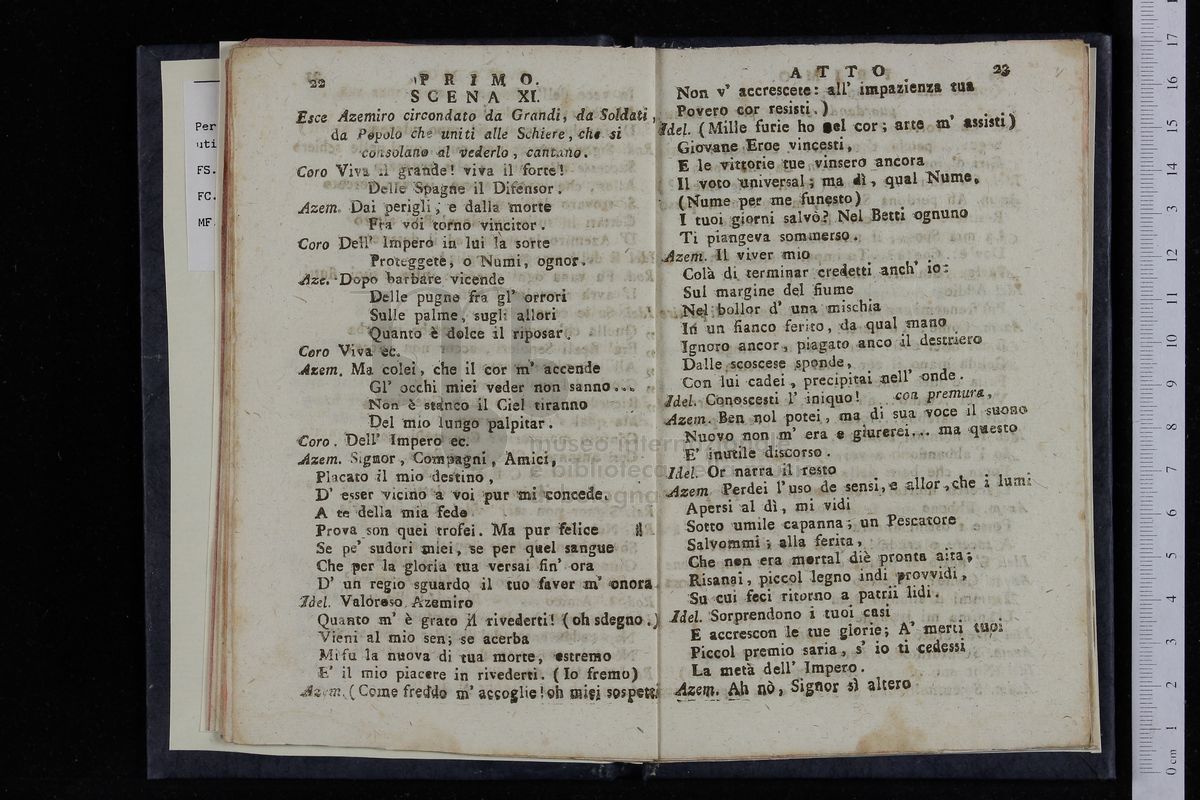 22 PRIMO.
SCENA XI.
Esce Azemiro circondato da Grandi, da Soldati,
da Popolo che uniti alle Schiere, che si
consolano al vederlo, cantano.
Coro Viva il grande! viva il forte!
Delle Spagne il Difensor.
Azem. Dai perigli, e dalla morte
Fra voi torno vincitor.
Coro Dell' Impero in lui la sorte
Proteggete, o Numi, ognor.
Aze. Dopo barbare vicende
Delle pugne fra gl' orrori
Sulle palme, sugli allori
Quanto è dolce il riposar.
Coro Viva ec.
Azem. Ma colei, che il cor m' accende
Gl' occhi miei veder non sanno...
Non è stanco il Ciel tiranno
Del mio lungo palpitar.
Coro. Dell' Impero ec.
Azem. Signor, Compagni, Amici,
Placato il mio destino,
D' esser vicino a voi pur mi concede.
A te della mia fede
Prova son quei trofei. Ma pur felice
Se pe' sudori miei, se per quel sangue
Che per la gloria tua versai fin' ora
D' un regio sguardo il tuo favor m' onora.
Idel. Valoroso Azemiro
Quanto m' è grato il rivederti! (oh sdegno.)
Vieni al mio sen; se acerba
Mi fu la nuova di tua morte, estremo
E' il mio piacere in rivederti. (Io fremo)
Azem. (Come freddo m' accoglie! oh miei sospetti
ATTO 23
Non v' accrescete: all' impazienza tua
Povero cor resisti.)
Idel. (Mille furie ho nel cor; arte m' assisti)
Giovane Eroe vincesti,
E le vittorie tue vinsero ancora
Il voto universal; ma dì, qual Nume,
(Nume per me funesto)
I tuoi giorni salvò? Nel Betti ognuno
Ti piangeva sommerso.
Azem. Il viver mio
Colà di terminar credetti anch' io:
Sul margine del fiume
Nel bollor d' una mischia
In un fianco ferito, da qual mano
Ignoro ancor, piagato anco il destriero
Dalle scoscese sponde,
Con lui cadei, precipitai nell' onde.
Idel. Conoscesti l' iniquo! con premura,
Azem. Ben nol potei, ma di sua voce il suono
Nuovo non m' era e giurerei... ma questo
E' inutile discorso.
Idel. Or narra il resto
Azem Perdei l'uso de sensi, e allor, che i lumi
Apersi al dì, mi vidi
Sotto umile capanna; un Pescatore
Salvommi; alla ferita,
Che non era mortal diè pronta aita;
Risanai, piccol legno indi provvidi,
Su cui feci ritorno a patrii lidi.
Idel. Sorprendono i tuoi casi
E accrescon le tue glorie; A' merti tuoi
Piccol premio saria, s' io ti cedessi
La metà dell' Impero.
Azem. Ah nò, Signor sì altero
Per
FS.
FC.
MF.
museo internazionale
e biblioteca
0 cm 1 2 3 4 5 6 7 8 9 10 11 12 13 14 15 16 17